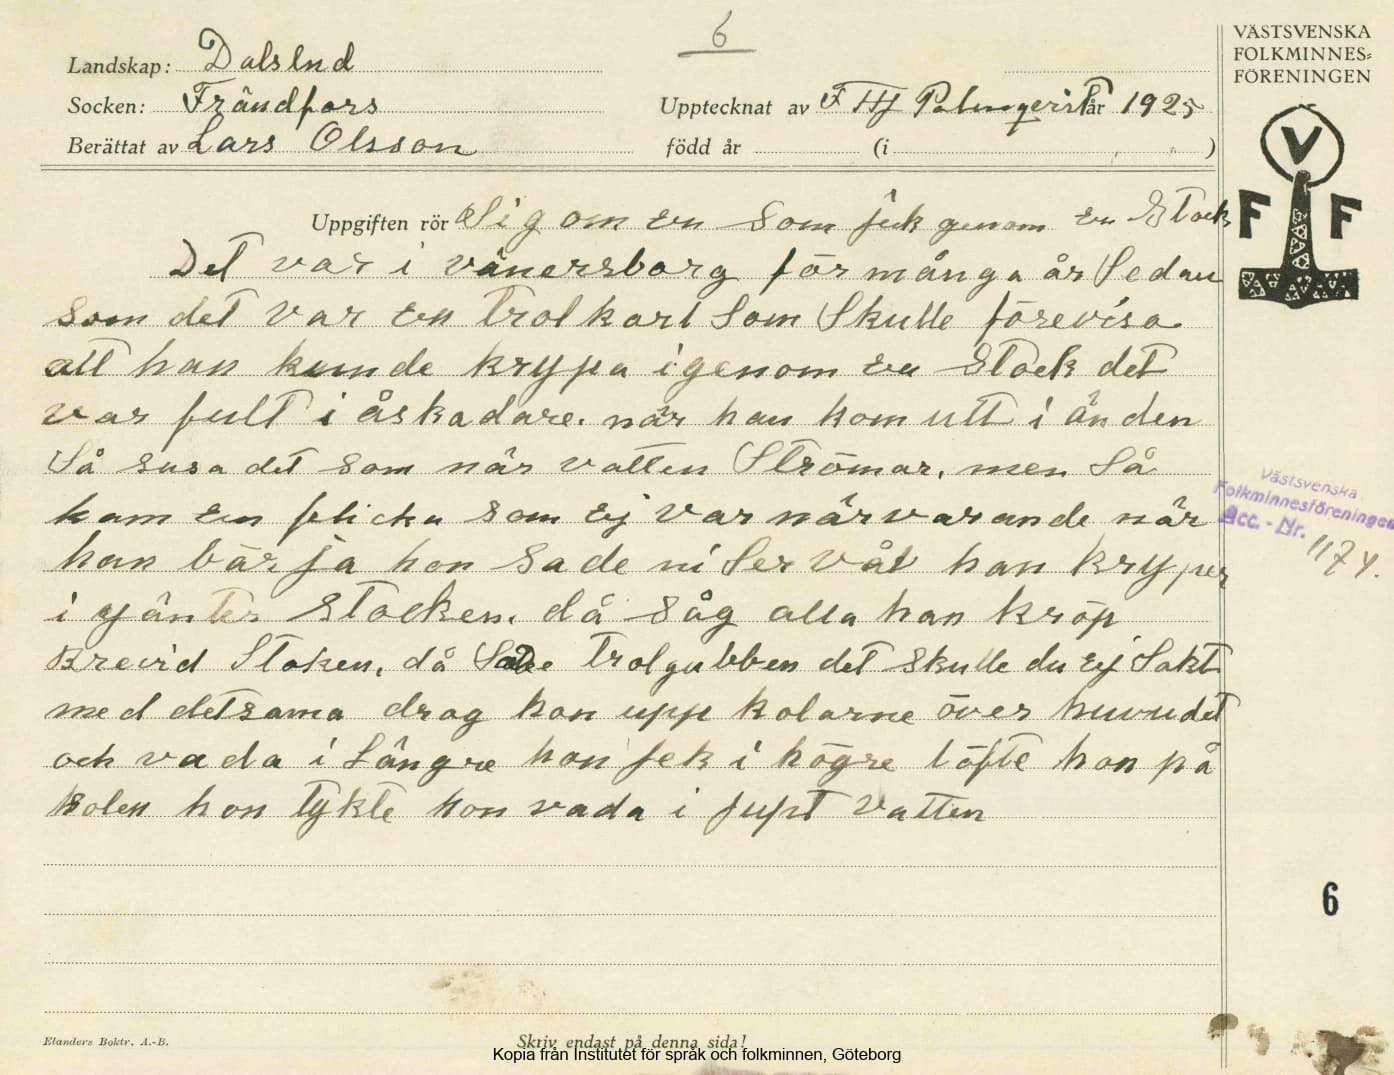 6
VÄSTSVENSKA
FOLKMINNES-
FÖRENINGEN
V
F F
Landskap: Dalslnd
Socken: Frändfors Upptecknat av F Hj Palmqvist år 1925
Berättat av Lars Olsson född år (i )
Uppgiften rör Sig om en som fick genom en Stock
Det var i vänersborg för många år Sedan
som det var en trolkarl Som Skulle förevisa
att han kunde krypa igenom en Stock det
var fult i åskadare. när han kom utt i änden
Så susa det som när vatten Strömar, men Så
kom en flicka som ej var närvarande när
han bärja hon sade ni Ser vål han kryper
i gänter Stocken. då såg alla han kröp
Brevid Stoken, då Sade trolgubben det skulle du ej Sakt
med detsama drog hon upp kolarne över huvudet
och vada i Längre hon fek i högre löfte hon på
kolen hon tykte hon vada i jupt vatten
Västsvenska
Folkminnesföreningen
Acc. - Nr. 1174.
6
Elanders Boktr. A.-B. Skriv endast på denna sida!
Kopia från Institutet för språk och folkminnen, Göteborg